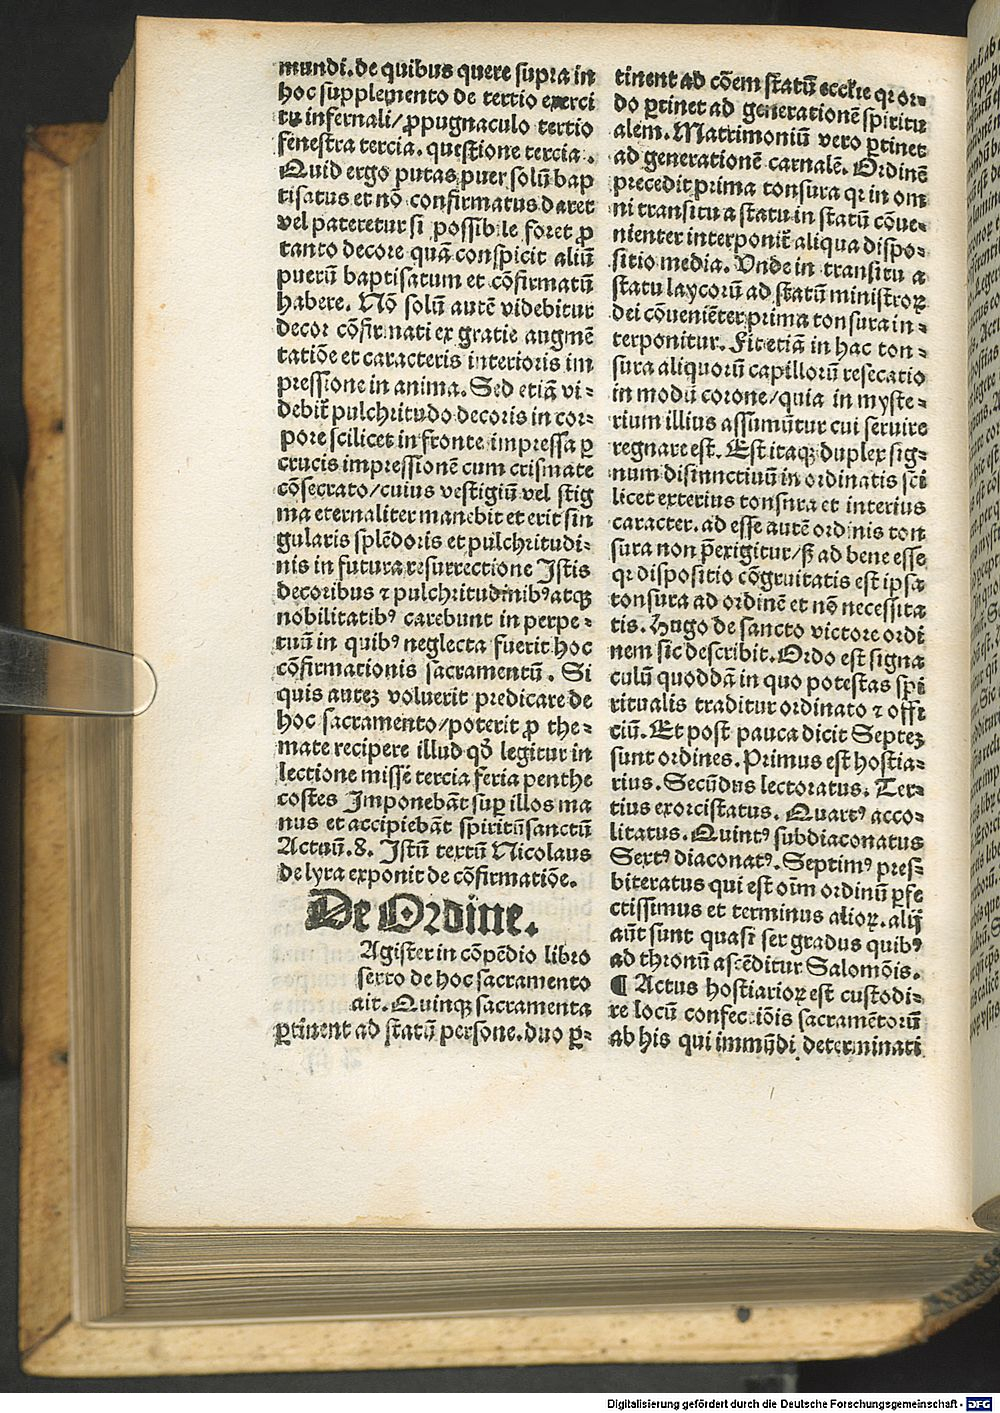 mundi. de quibus quere supra in
hoc supplemento de tertio exerci
tu infernali/ ꝓpugnaculo tertio
fenestra tercia. questione tercia.
Quid ergo putas puer solū bap
tisatus et nō confirmatus daret
vel pateretur si possibile foret ꝓ
tanto decore quā conspicit aliū
puerū baptisatum et cōfirmatū
habere. Nō solū autē videbitur
decor cōfirmati ex gratie augmē
tatiōe et caracteris interioris im
pressione in anima. Sed etiā vi⸗
debit᷑ pulchritudo decoris in cor⸗
pore scilicet in fronte impressa ꝑ
crucis impressionē cum crismate
cōsecrato/cuius vestigiū vel stig
ma eternaliter manebit et erit sin
gularis splēdoris et pulchritudi⸗
nis in futura resurrectione Istis
decoribus ⁊ pulchritudinibꝰ atqꝫ
nobilitatibꝰ carebunt in perpe⸗
tuū in quibꝰ neglecta fuerit hoc
cōfirmationis sacramentū. Si
quis auteꝫ voluerit predicare de
hoc sacramento/poterit ꝓ the⸗
mate recipere illud qō legitur in
lectione misse tercia feria penthe
costes Imponebāt suꝑ illos ma
nus et accipiebāt spiritūsanctū
Actuū. 8. Istū textū Nicolaus
de lyra exponit de cōfirmatiōe.
De Ordine.
Agister in cōpēdio libro
serto de hoc sacramento
ait. Quinqꝫ sacramenta
ꝑtinent ad statū persone. duo ꝑ⸗
tinent ad cōem statū ecclie qꝛ or⸗
do ꝑtinet ad generationē spiritu
alem. Matrimoniū vero ꝑtinet
ad generationē carnalē. Ordinē
precedit prima tonsura qꝛ in om
ni transitu a statu in statū cōue⸗
nienter interponit᷑ aliqua dispo⸗
sitio media. Vnde in transitu a
statu laycorū ad statū ministroꝝ
dei cōueniēter prima tonsura in⸗
terponitur. Fit etiā in hac ton⸗
sura aliquorū capillorū resecatio
in modū corone/quia in myste⸗
rium illius assumūtur cui seruire
regnare est. Est itaqꝫ duplex sig⸗
num disinnctiuū in ordinatis sci
licet exterius tonsura et interius
caracter. ad esse autē ordinis ton
sura non p̄exigitur/sꝫ ad bene esse
qꝛ dispositio cōgruitatis est ipsa
tonsura ad ordinē et nō necessita
tis. Hugo de sancto victore ordi
nem sic describit. Ordo est signa
culū quoddā in quo potestas spi
ritualis traditur ordinato ⁊ offi
ciū. Et post pauca dicit Septeꝫ
sunt ordines. Primus est hostia⸗
rius. Secūdus lectoratus. Ter⸗
tius exorcistatus. Quartꝰ acco⸗
litatus. Quintꝰ subdiaconatus
Sextꝰ diaconatꝰ. Septimꝰ pres⸗
biteratus qui est oīm ordinū ꝑfe
ctissimus et terminus alioꝝ. alij
aūt sunt quasi sex gradus quibꝰ
ad thronū ascēditur Salomōis.
¶ Actus hostiarioꝝ est custodi⸗
re locū confectiōis sacramētorū
ab his qui immūdi determinati
Digitalisierung gefördert durch die Deutsche Forschungsgemeinschaft - DFG